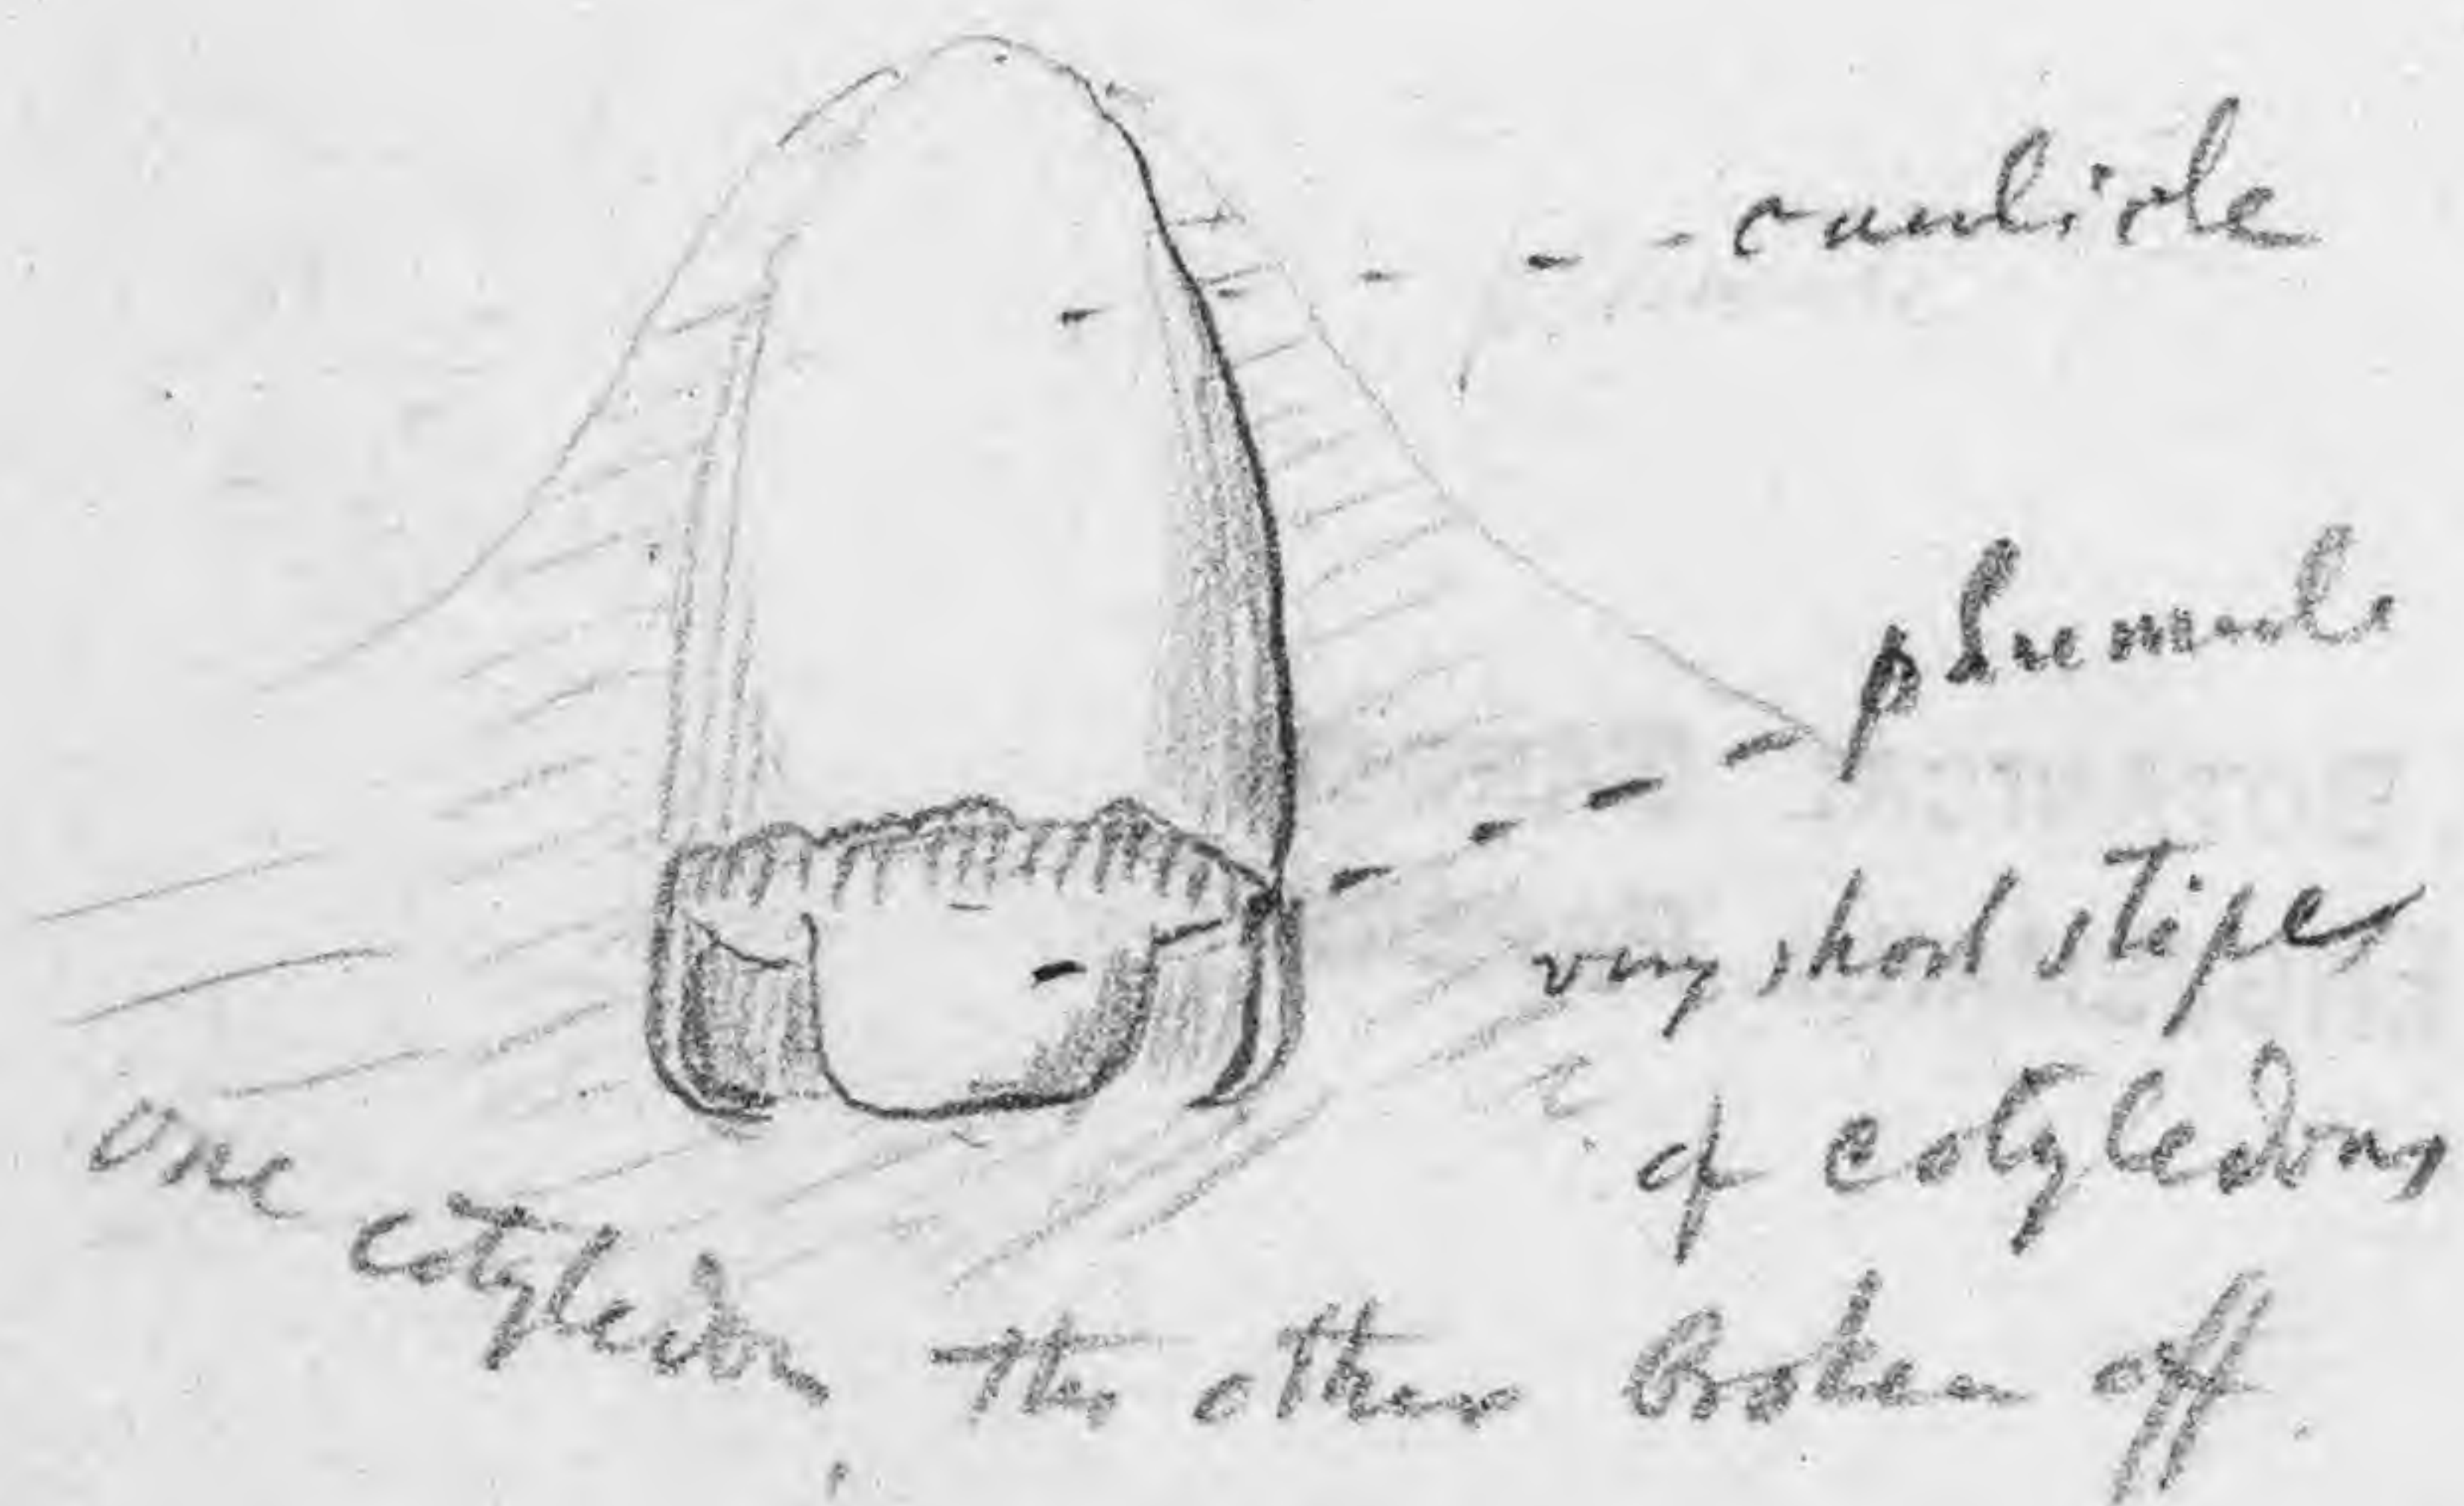 caulicle
plumule
very short stipes
of cotyledons
one cotyledon the other broken off